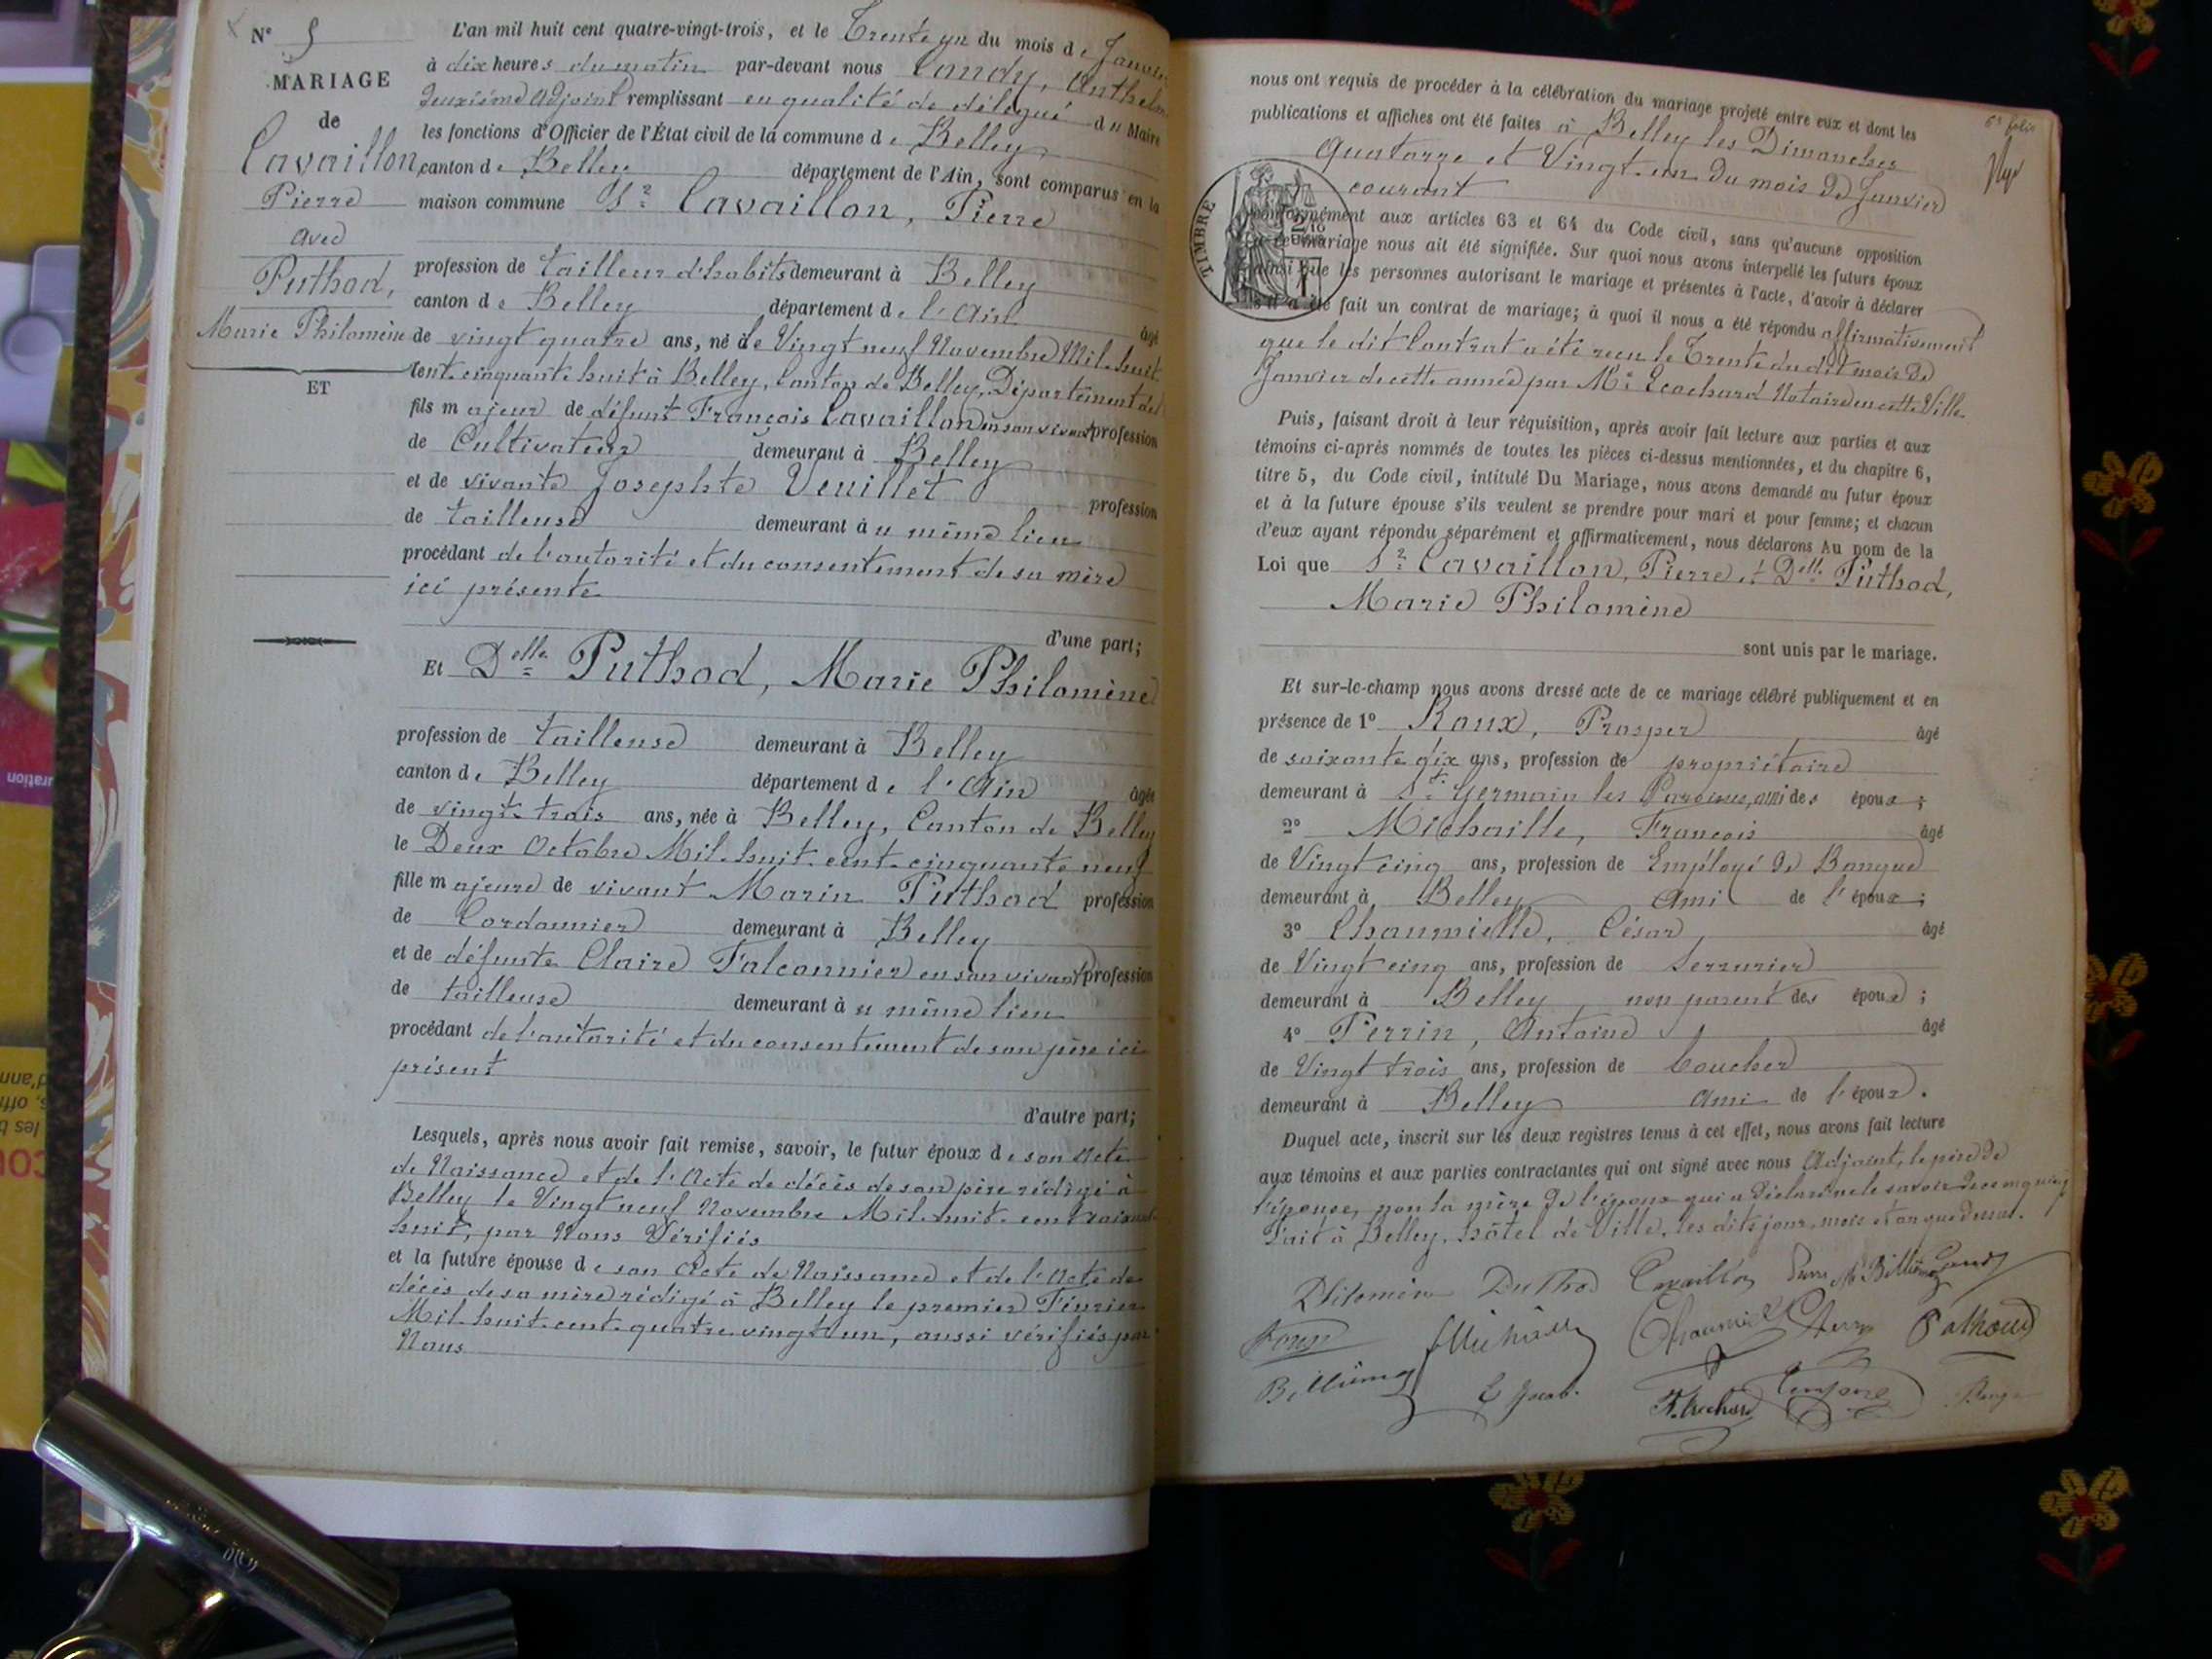 N° 5
MARIAGE
de
Cavaillon
Pierre
avec
Puthod,
Marie Philomène
ET
L'an mil huit cent quatre-vingt-trois, et le Trente un du mois de Janvier
à dix heures du matin par-devant nous Candy, Anthelme
Deuxième Adjoint remplissant en qualité de délégué du Maire
les fonctions d'Officier de l'État civil de la commune de Belley
canton de Belley département de l'Ain, sont comparus en la
maison commune Sr Cavaillon, Pierre
profession de tailleur d'habits demeurant à Belley
canton de Belley département de l'Ain âgé
de vingt quatre ans, né le Vingt neuf Novembre Mil huit
cent cinquante huit à Belley, Canton de Belley, Département de
fils majeur de défunt François Cavaillon en son vivant profession
de Cultivateur demeurant à Belley
et de vivante Josephte Veuillet profession
de tailleuse demeurant au même lieu
procédant de l'autorité et du consentement de sa mère
ici présente
d'une part;
Et Delle Puthod, Marie Philomène
profession de tailleuse demeurant à Belley
canton de Belley département de l'Ain âgée
de vingt-trois ans, née à Belley, Canton de Belley
le Deux Octobre Mil-huit-cent-cinquante neuf
fille majeure de vivant Marin Puthod profession
de Cordonnier demeurant à Belley
et de défunte Claire Falconnier en son vivant profession
de tailleuse demeurant au même lieu
procédant de l'autorité et du consentement de son père ici
présent
d'autre part;
Lesquels, après nous avoir fait remise, savoir, le futur époux de son Acte
de Naissance et de l'Acte de décès de son père rédigé à
Belley le Vingt neuf Novembre Mil-huit-cent soixante
huit, par Nous Vérifiés
et la future épouse de son Acte de Naissance et de l'Acte de
décès de sa mère rédigé à Belley le premier Février
Mil-huit-cent-quatre-vingt un, aussi vérifiés par
Nous
6e folio
nous ont requis de procéder à la célébration du mariage projeté entre eux et dont les
publications et affiches ont été faites à Belley les Dimanches
Quatorze et Vingt-un du mois de Janvier
courant
TIMBRE
conformément aux articles 63 et 64 du Code civil, sans qu'aucune opposition
à ce mariage nous ait été signifiée. Sur quoi nous avons interpellé les futurs époux
ainsi que les personnes autorisant le mariage et présentes à l'acte, d'avoir à déclarer
s'il a été fait un contrat de mariage; à quoi il nous a été répondu affirmativement
que le dit Contrat a été reçu le Trente du dit mois de
Janvier de cette année par Me Ecochard Notaire en cette Ville
Puis, faisant droit à leur réquisition, après avoir fait lecture aux parties et aux
témoins ci-après nommés de toutes les pièces ci-dessus mentionnées, et du chapitre 6,
titre 5, du Code civil, intitulé Du Mariage, nous avons demandé au futur époux
et à la future épouse s'ils veulent se prendre pour mari et pour femme; et chacun
d'eux ayant répondu séparément et affirmativement, nous déclarons Au nom de la
Loi que Sr Cavaillon, Pierre et Delle Puthod,
Marie Philomène
sont unis par le mariage.
Et sur-le-champ nous avons dressé acte de ce mariage célébré publiquement et en
présence de 1° Roux, Prosper âgé
de soixante dix ans, profession de propriétaire
demeurant à St Germain les Paroisses, ami des époux;
2° Michaille, François âgé
de Vingt cinq ans, profession de Employé de Banque
demeurant à Belley Ami de l'époux;
3° Chaumielle, César âgé
de Vingt cinq ans, profession de Serrurier
demeurant à Belley non parent des époux;
4° Perrin, Antoine âgé
de Vingt trois ans, profession de boucher
demeurant à Belley Ami de l'époux.
Duquel acte, inscrit sur les deux registres tenus à cet effet, nous avons fait lecture
aux témoins et aux parties contractantes qui ont signé avec nous Adjoint, le père de
l'épouse, non la mère de l'époux qui a déclaré ne le savoir de ce requise
Fait à Belley, hôtel de Ville, les dits jour, mois et an que dessus.
Philomène Puthod Cavaillon Pierre